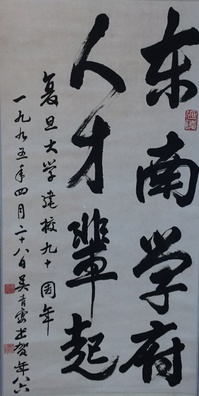 东南学府
人才辈起
复旦大学建校九十周年
一九九五年四月二十八日吴青霞书贺年八六